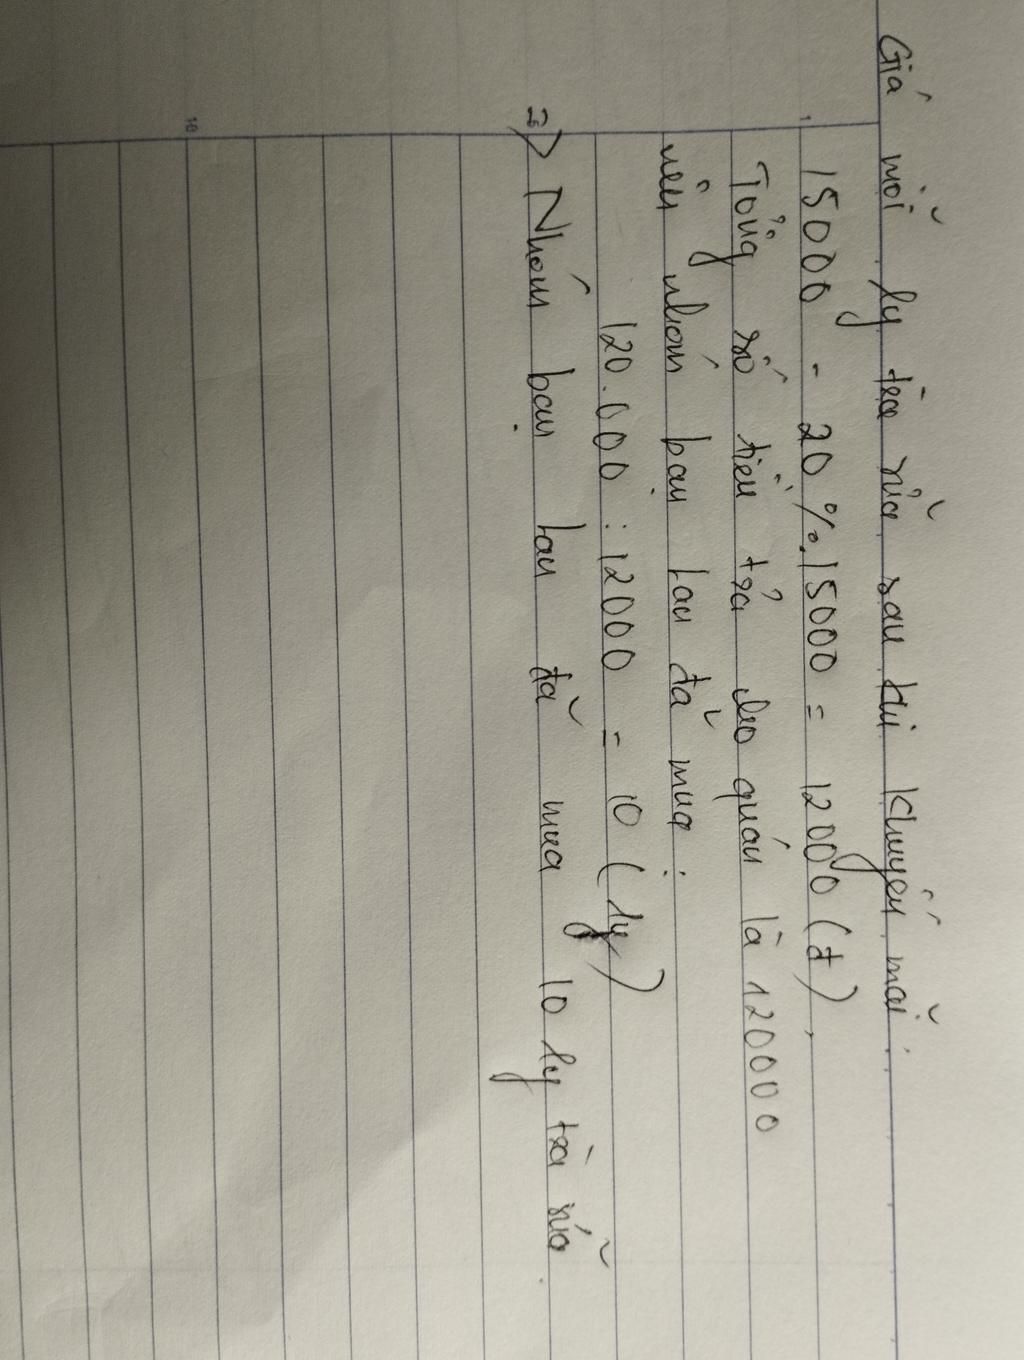 Giá mỗi ly trà sữa sau khi khuyến mãi.
15000 - 20%.15000 = 12000 (đ).
Tổng số tiền trả cho quán là 120000
nên nhóm bạn Lan đã mua:
120.000 : 12000 = 10 (ly)
=> Nhóm bạn Lan đã mua 10 ly trà sữa.